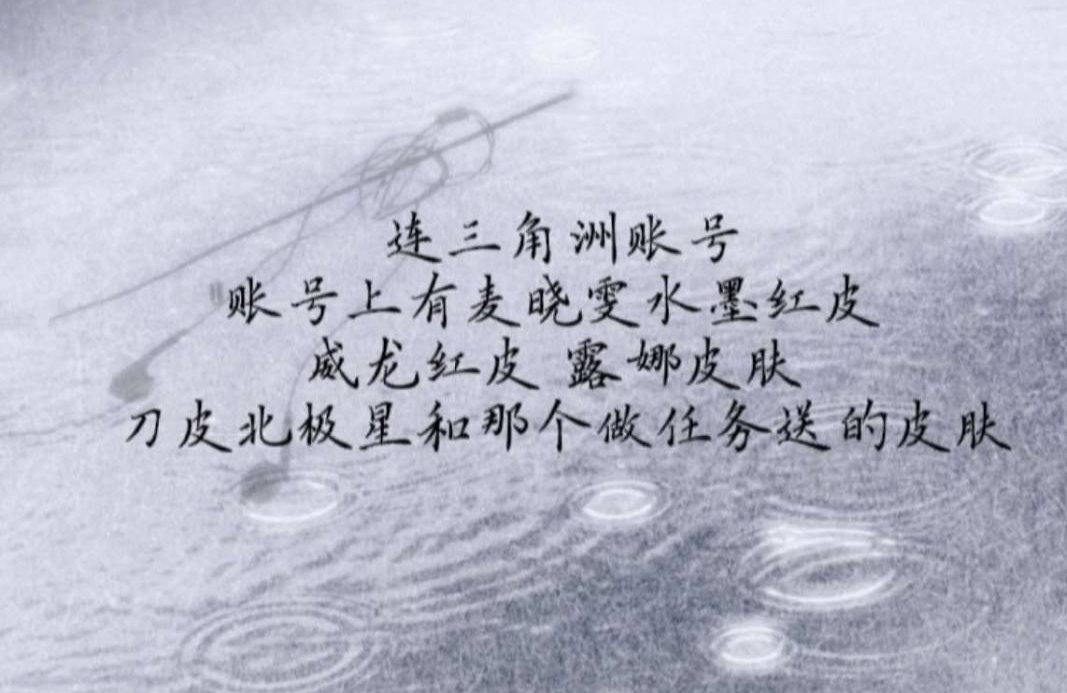 连三角洲账号
账号上有麦晓雯水墨红皮
威龙红皮 露娜皮肤
刀皮北极星和那个做任务送的皮肤